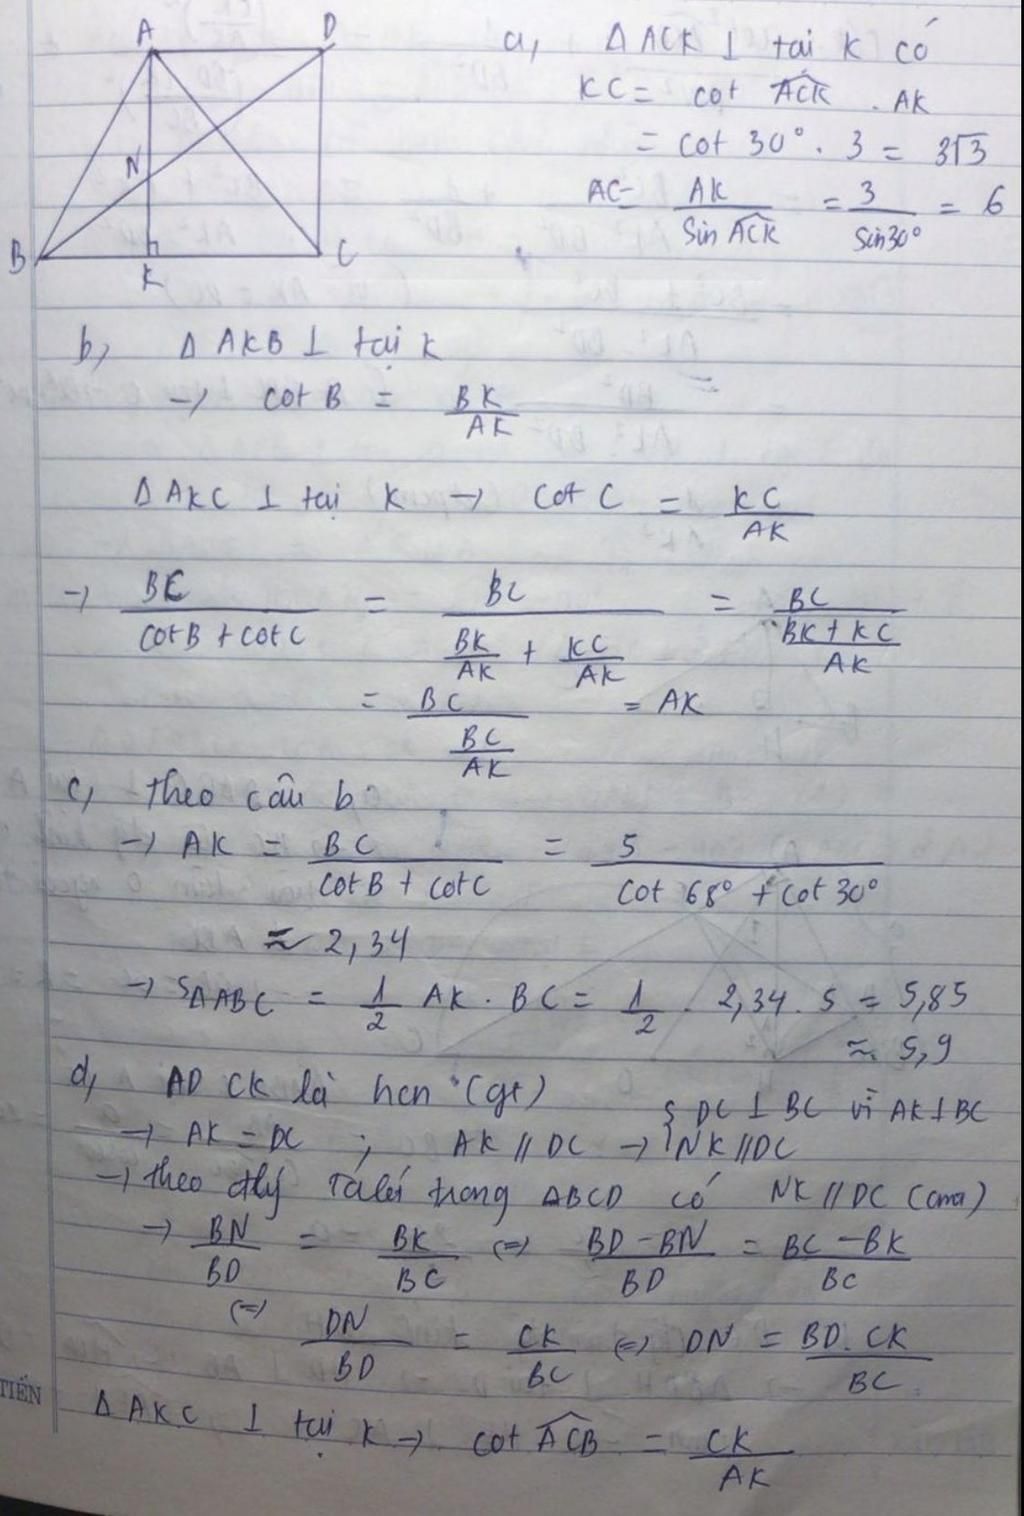 A D
N
B K C
a, Δ ACK ⊥ tại K có
KC = cot ACK . AK
= cot 30° . 3 = 3√3
AC = AK / sin ACK = 3 / sin 30° = 6
b, Δ AKB ⊥ tại K
→ cot B = BK / AK
Δ AKC ⊥ tại K → cot C = KC / AK
→ BC / (cot B + cot C) = BC / (BK/AK + KC/AK) = BC / ((BK + KC)/AK)
= BC / (BC/AK) = AK
c, theo câu b:
→ AK = BC / (cot B + cot C) = 5 / (cot 68° + cot 30°)
≈ 2,34
→ SΔABC = 1/2 AK . BC = 1/2 . 2,34 . 5 = 5,85
≈ 5,9
d, ADCK là hcn (gt)
→ AK = DC ; AK // DC → { DC ⊥ BC vì AK ⊥ BC
NK // DC
→ theo đlý Talét trong ΔBCD có NK // DC (cma)
→ BN/BD = BK/BC (=) (BD - BN)/BD = (BC - BK)/BC
(=) DN/BD = CK/BC (=) DN = BD.CK/BC
TIẾN
Δ AKC ⊥ tại K → cot ACB = CK/AK